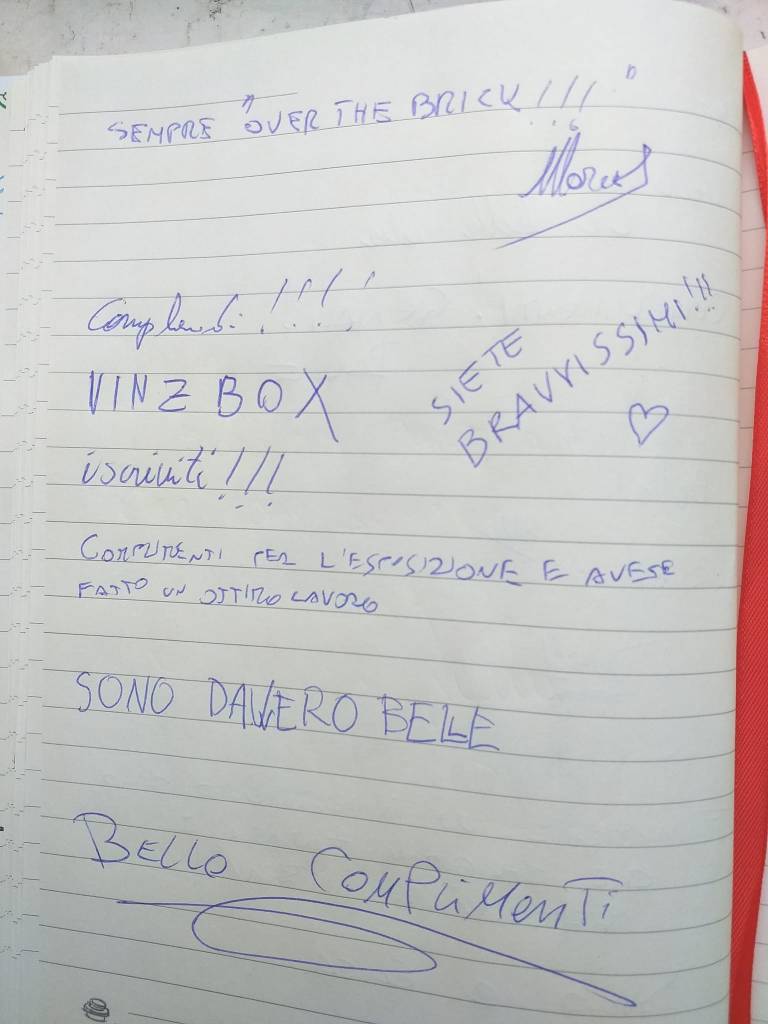 SEMPRE "OVER THE BRICK!!!"
Complimenti!!!!
VINZBOX
iscriviti!!!
SIETE
BRAVVISSIMI!!!
COMPLIMENTI PER L'ESPOSIZIONE E AVESE
FATTO UN OTTIMO LAVORO
SONO DAVVERO BELLE
BELLO COMPLIMENTI